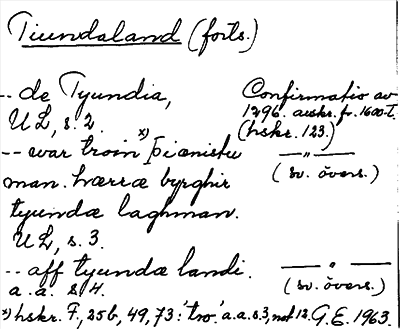 Tiundaland (forts.)
-- de Tyundia, Confirmatio av
UL, s. 2. 1296. avskr. fr. 1600-t.
(hskr. 123.)
-- war troin x) þiænistu — " —
man. hærræ byrghir (sv. övers.)
tyundæ laghman.
UL, s. 3.
-- aff tyundæ landi. — " —
a. a. s 4. (sv. övers.)
x) hskr. F, 25b, 49, 73: 'tro'. a.a. s. 3, not 12. G.E. 1963.